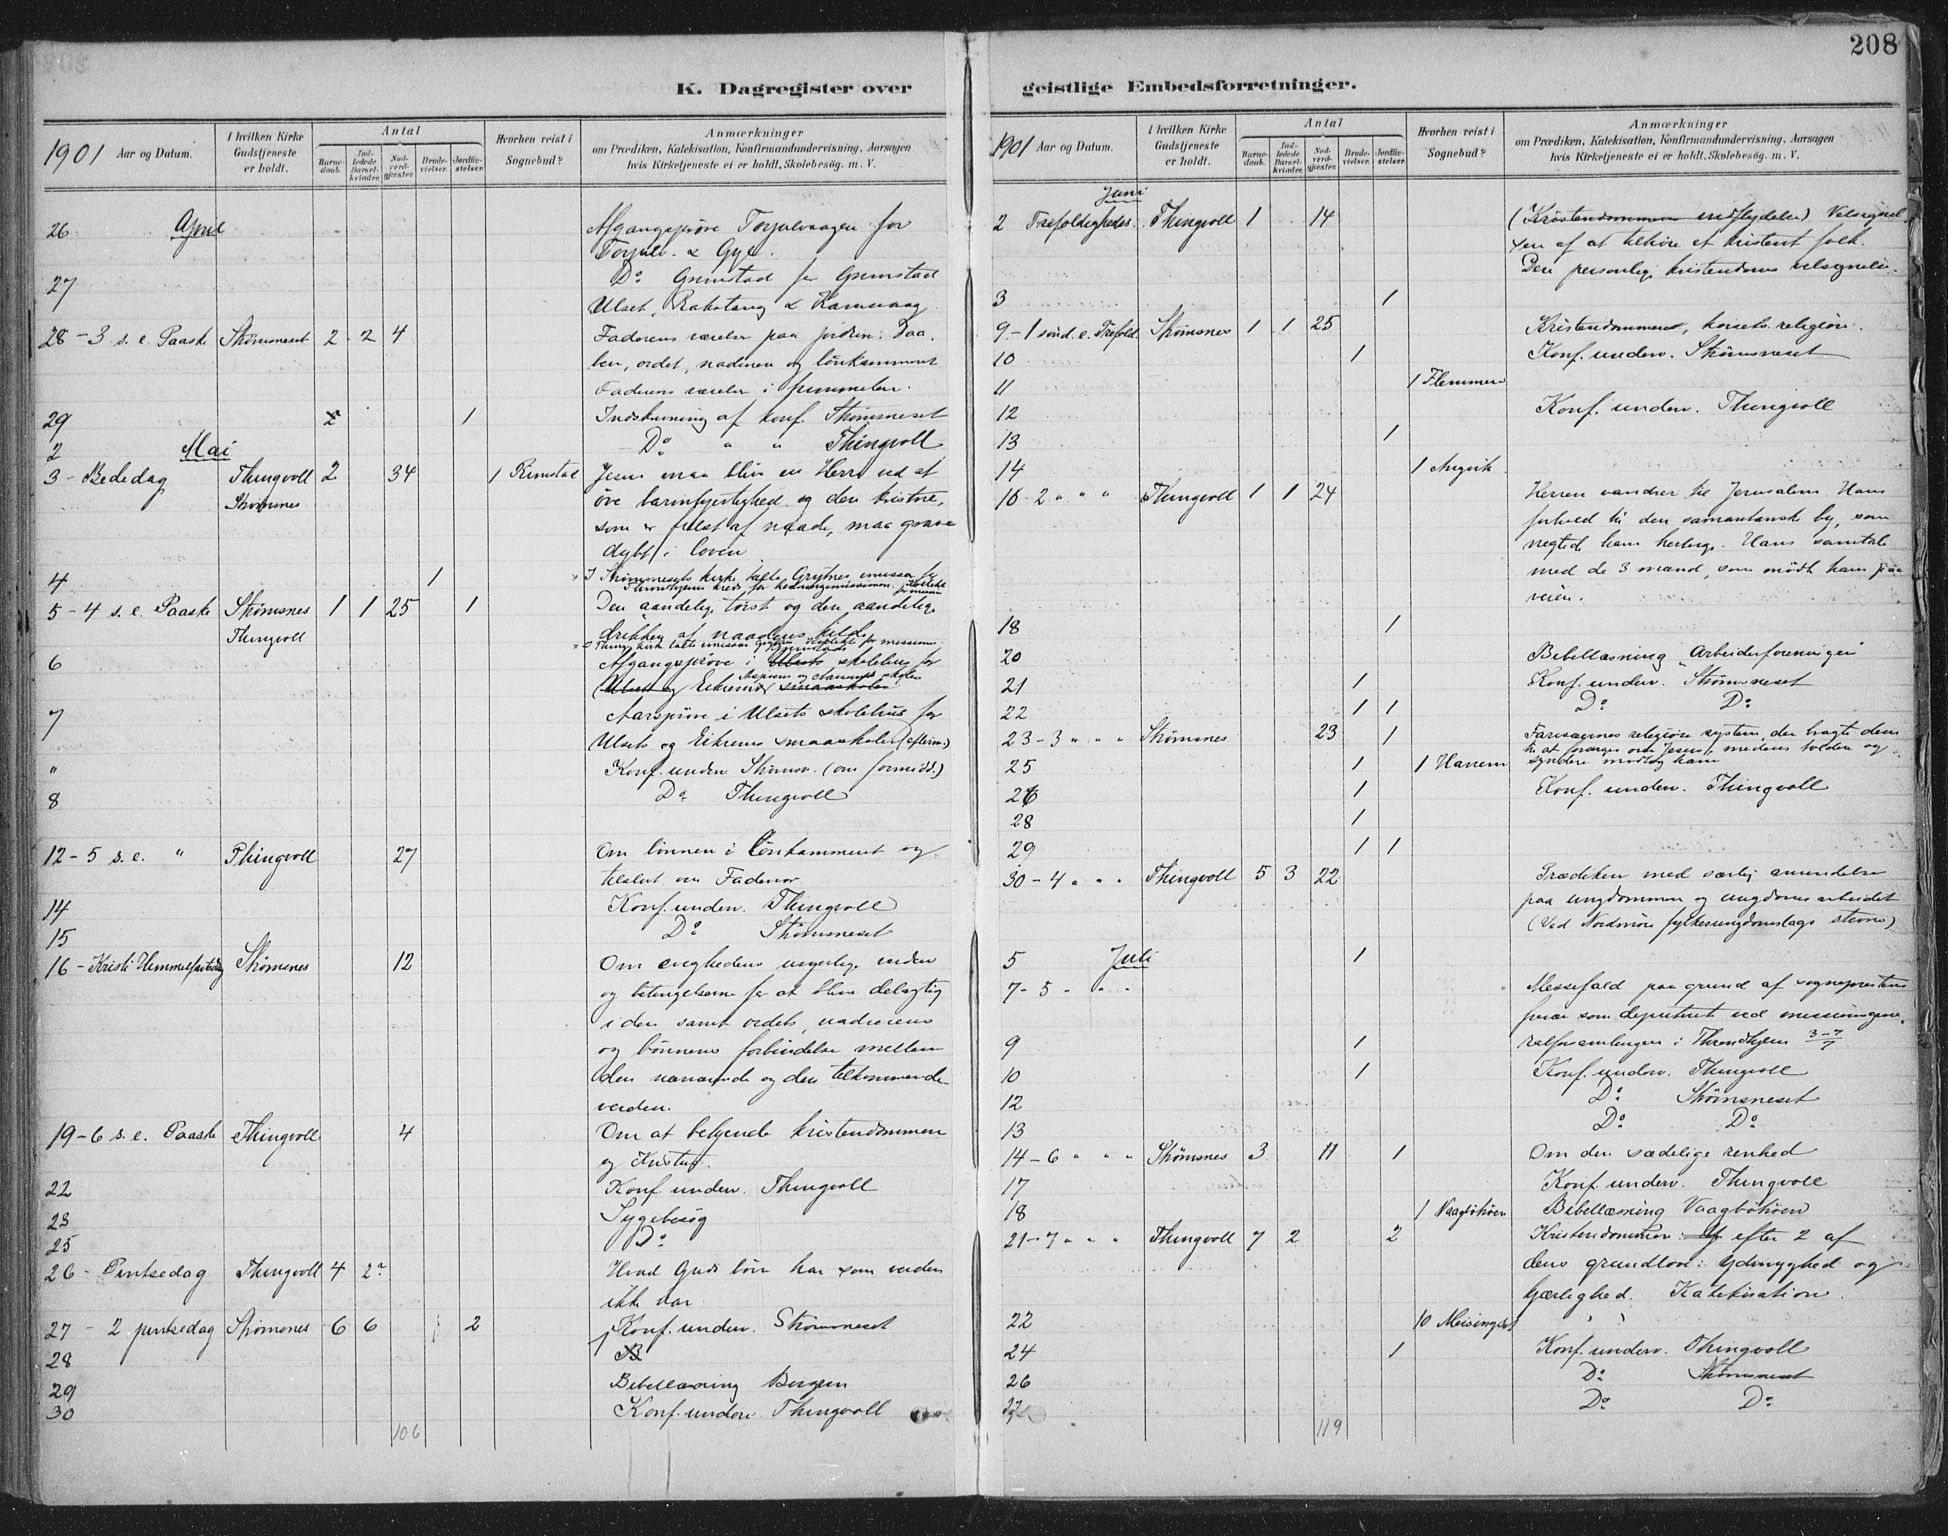 208
K. Dagregister over
1901 Aar og Datum.
I hvilken Kirke Gudstjeneste er holdt.
Antal
Barne-daab.
Ind-ledede Barsel-kvinder.
Nad-verd-gjæster.
Brude-vielser.
Jordfæ-stelser.
Hvorhen reist i Sognebud?
Anmærkninger
om Prædiken, Katekisation, Konfirmandundervisning, Aarsagen
hvis Kirketjeneste ei er holdt, Skolebesøg. m. V.
26 April Afgangsprøve Torjulvaagen for
Torjulv. & Gyl.
27 Do Grimstad for Grimstad
Ulset, Rakstang & Hamnvaag
28 - 3 s. e. Paaske Strømsneset 2 2 4 Faderens værelser paa jorden: Daa-
ben, ordet, nadveren og lönkammeret
Faderens værelser i himmelen.
29 1 Indskrivning af konf. Strømsneset
2 Mai Do " " Thingvoll
3 - Bededag Thingvoll 2 34 1 Rimstad Jesus maa blive en Herre ved at
Strømsnes öve barmhjertighed og den kristne,
som er frelst af naade, maa grave
dybt i loven
4 1 I Strømsnesets kirke talte Grytnes emissær for
Throndhjems kreds for hedningemissionen.
5 - 4 s. e. Paaske Strømsnes 1 1 25 1 Den aandelige törst og den aandelige
Thingvoll drikken af naadens kilde
6 Afgangsprøve i Ulsets skolehus for
(Ulset og Eikrem smaaskoler
7 Aarsprøve i Ulsets skolehus for
Ulsets og Eikrems smaaskoler (efterm.)
" Konf. underv. Strømsn. (om formidd.)
8 Do Thingvoll
12 - 5 s. e. " Thingvoll 27 Om bönnen i Lönkammeret og
tilslut om Fadervor
14 Konf. underv. Thingvoll
15 Do Strømsneset
16 - Kristi Himmelfartsdag Strømsnes 12 Om evighedens usynlige verden
og betingelserne for at blive delagtig
i den samt ordets, nadverens
og bønnens forbindelse mellem
den nærværende og den tilkommende
verden.
19 - 6 s. e. Paaske Thingvoll 4 Om at bekjende kristendommen
og Kristus.
22 Konf. underv. Thingvoll
23 Sygebesög
25 Do
26 - Pintsedag Thingvoll 4 2 Hvad Guds börn har som verden
ikke har
27 - 2 pintsedag Strømsnes 6 6 2 Konf. underv. Strømsneset
28
29 Bibellæsning Bergem
30 Konf. underv. Thingvoll
106
geistlige Embedsforretninger.
1901 Aar og Datum.
I hvilken Kirke Gudstjeneste er holdt.
Antal
Barne-daab.
Ind-ledede Barsel-kvinder.
Ned-verd-gjæster.
Brude-vielser.
Jordfæ-stelser.
Hvorhen reist i Sognebud?
Anmærkninger
om Prædiken, Katekisation, Konfirmandundervisning, Aarsagen
hvis Kirketjeneste ei er holdt, Skolebesøg. m. V.
Juni
2 Trefoldigheds. Thingvoll 1 14 (Kristendommens indflydelse) Velsignel-
sen af at tilhöre et kristent folk.
Den personlige kristendoms velsignelse.
3 1
9 - 1 sönd. e. Trefold. Strømsnes 1 1 25 Kristendommen, korsets religion.
10 1 Konf. underv. Strømsneset
11 1 Flemmen
12 Konf. underv. Thingvoll
13 1
14 1 Angvik
16 - 2 " " " Thingvoll 1 1 24 Herren vandrer til Jerusalem. Hans
forhold til den samaritanske by, som
negted ham herberge. Hans samtale
med de 3 mænd, som mödte ham paa
veien.
18 1
20 Bibellæsning "Arbeiderforeningen"
21 1 Konf. underv. Strømsneset
22 1 1 Do Do
23 - 3 " " " Strømsnes 23 1 Farisæernes religiöse system, der bragte dem
til at forarges over Jesus, medens toldere og
25 1 1 Hanem syndere modtog ham
26 1 Konf. underv. Thingvoll
28 1
29 1 1
30 - 4 " " " Thingvoll 5 3 22 Prædiken med særlig anvendelse
paa ungdommen og ungdomsarbeidet
(Ved Nordmøre fylkesungdomslags stevne)
5 Juli 1
7 - 5 " " " Messefald paa grund af sogneprestens
færd som deputeret ved missionsgene-
9 1 ralforsamlingen i Throndhjem 3-7/7
10 1 Konf. underv. Thingvoll
12 Do Strømsneset
13 Do Do
14 - 6 " " " Strømsnes 3 11 1 Om den sædelige renhed
17 Konf. underv. Thingvoll
18 1 Vaagbøtöen Bibellæsning Vaagbøtöen
21 - 7 " " " Thingvoll 7 2 2 Kristendommen: efter 2 af
dens grundlove: Ydmyghed og
kjærlighed. Katekisation.
22 10 Meisingset " "
24 1 Konf. underv. Thingvoll
26 Do Strømsneset
27 Do Do
119